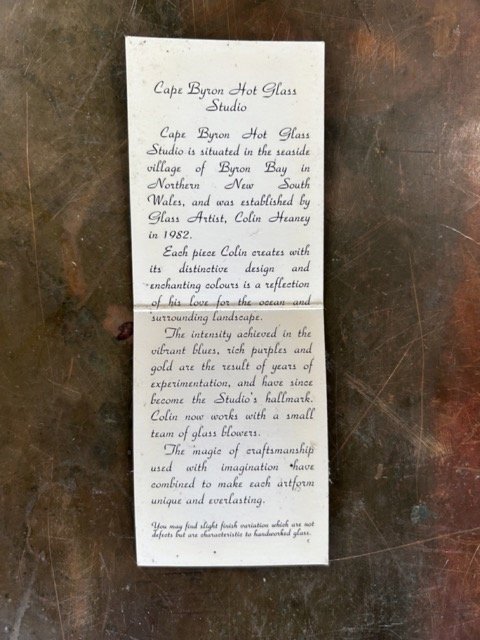 Cape Byron Hot Glass
Studio
Cape Byron Hot Glass
Studio is situated in the seaside
village of Byron Bay in
Northern New South
Wales, and was established by
Glass Artist, Colin Heaney
in 1982.
Each piece Colin creates with
its distinctive design and
enchanting colours is a reflection
of his love for the ocean and
surrounding landscape.
The intensity achieved in the
vibrant blues, rich purples and
gold are the result of years of
experimentation, and have since
become the Studio's hallmark.
Colin now works with a small
team of glass blowers.
The magic of craftsmanship
used with imagination have
combined to make each artform
unique and everlasting.
You may find slight finish variation which are not
defects but are characteristic to handworked glass.